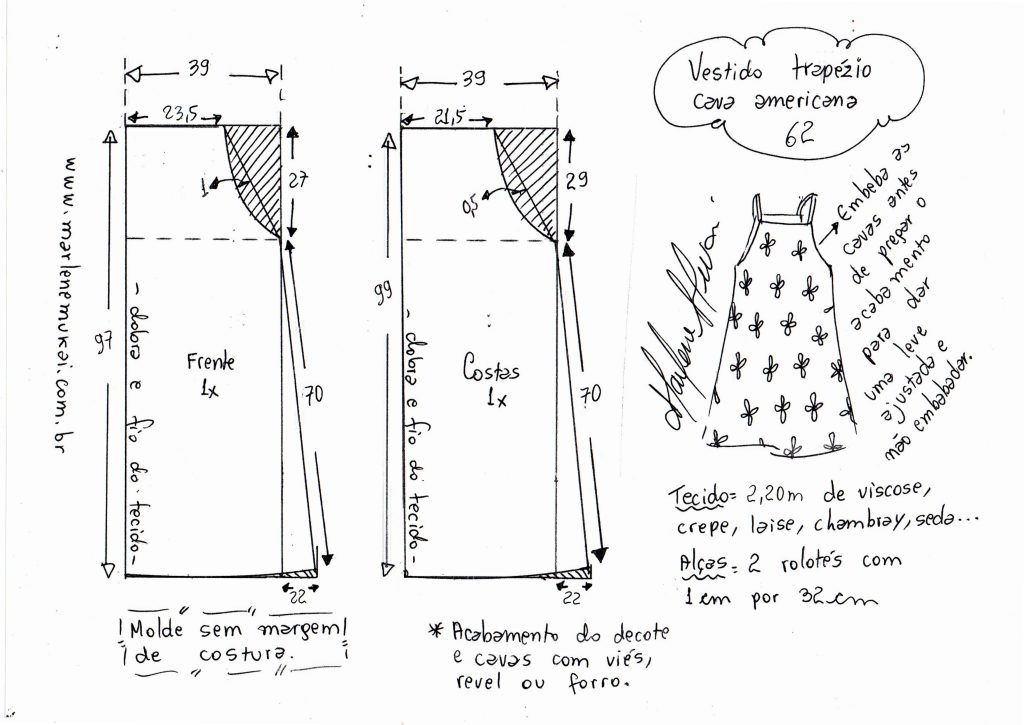 www.marlenemukai.com.br
39
23,5
1
27
97
- dobra e fio do tecido-
Frente
1x
70
22
Molde sem margem
de costura.
39
21,5
0,5
29
99
- dobra e fio do tecido-
Costas
1x
70
22
* Acabamento do decote
e cavas com viés,
revel ou forro.
Vestido trapézio
cava americana
62
Marlene Mukai
Embeba as
cavas antes
de pregar o
acabamento
para dar
uma leve
ajustada e
não embabadar.
Tecido= 2,20m de viscose,
crepe, laise, chambray, seda...
Alças= 2 rolotés com
1cm por 32cm